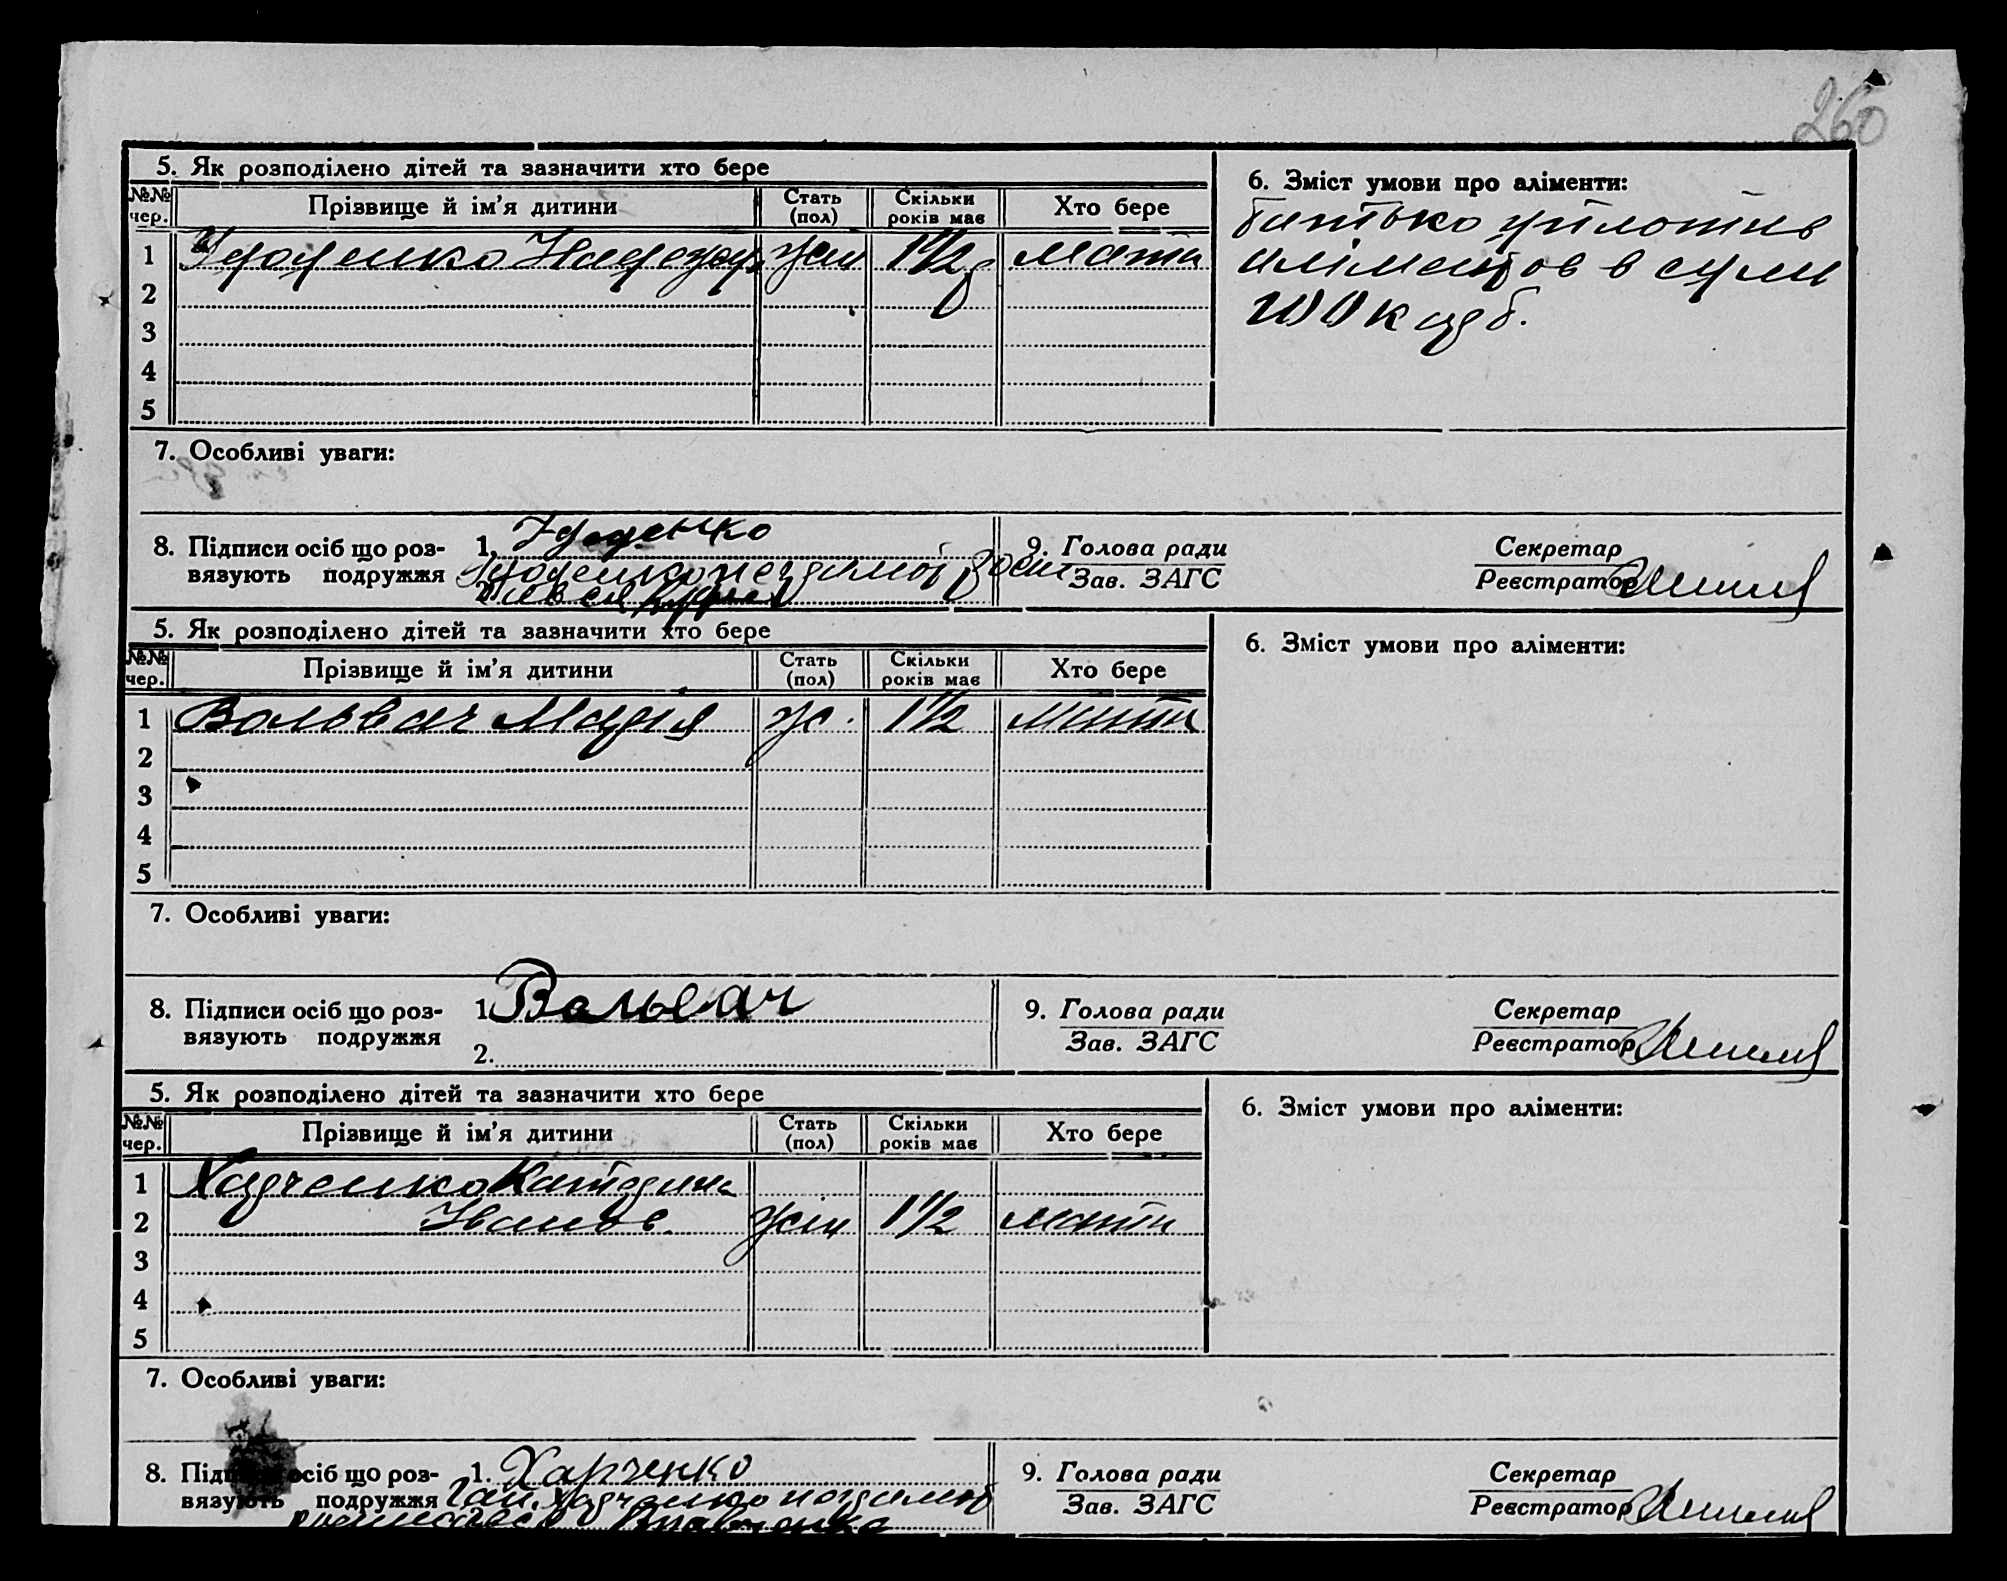 260
5. Як розподілено дітей та зазначити хто бере
6. Зміст умови про аліменти:
№№ чер. Прізвище й ім'я дитини Стать (пол) Скільки років має Хто бере
батько
1 Надежда жін 1½ мати
в суми
2
3
100 к
4
5
7. Особливі уваги:
8. Підписи осіб що роз-вязують подружжя 1.
2.
9. Голова ради Зав. ЗАГС
Секретар Реєстратор
5. Як розподілено дітей та зазначити хто бере
6. Зміст умови про аліменти:
№№ чер. Прізвище й ім'я дитини Стать (пол) Скільки років має Хто бере
1 Вольвач Марія ж. 1½ мати
2
3
4
5
7. Особливі уваги:
8. Підписи осіб що роз-вязують подружжя 1. Вольвач
2.
9. Голова ради Зав. ЗАГС
Секретар Реєстратор
5. Як розподілено дітей та зазначити хто бере
6. Зміст умови про аліменти:
№№ чер. Прізвище й ім'я дитини Стать (пол) Скільки років має Хто бере
1 Харченко Катерина
2 Іванов. жін 1½ мати
3
4
5
7. Особливі уваги:
8. Підписи осіб що роз-вязують подружжя 1. Харченко
Харченко
9. Голова ради Зав. ЗАГС
Секретар Реєстратор